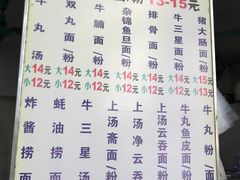 13-15元
牛丸汤
双丸面/粉
牛腩面/粉
杂锦鱼旦面/粉
排骨面/粉
牛三星面/粉
猪大肠面/粉
大14元 大14元 大14元 大14元 大14元 大14元 大15元
小12元 小12元 小12元 小12元 小12元 小12元 小13元
炸酱捞面
蚝油捞面
牛三星汤
上汤斋面/粉
上汤净云吞
上汤云吞面/粉
牛丸鱼皮面/粉
牛丸面/粉